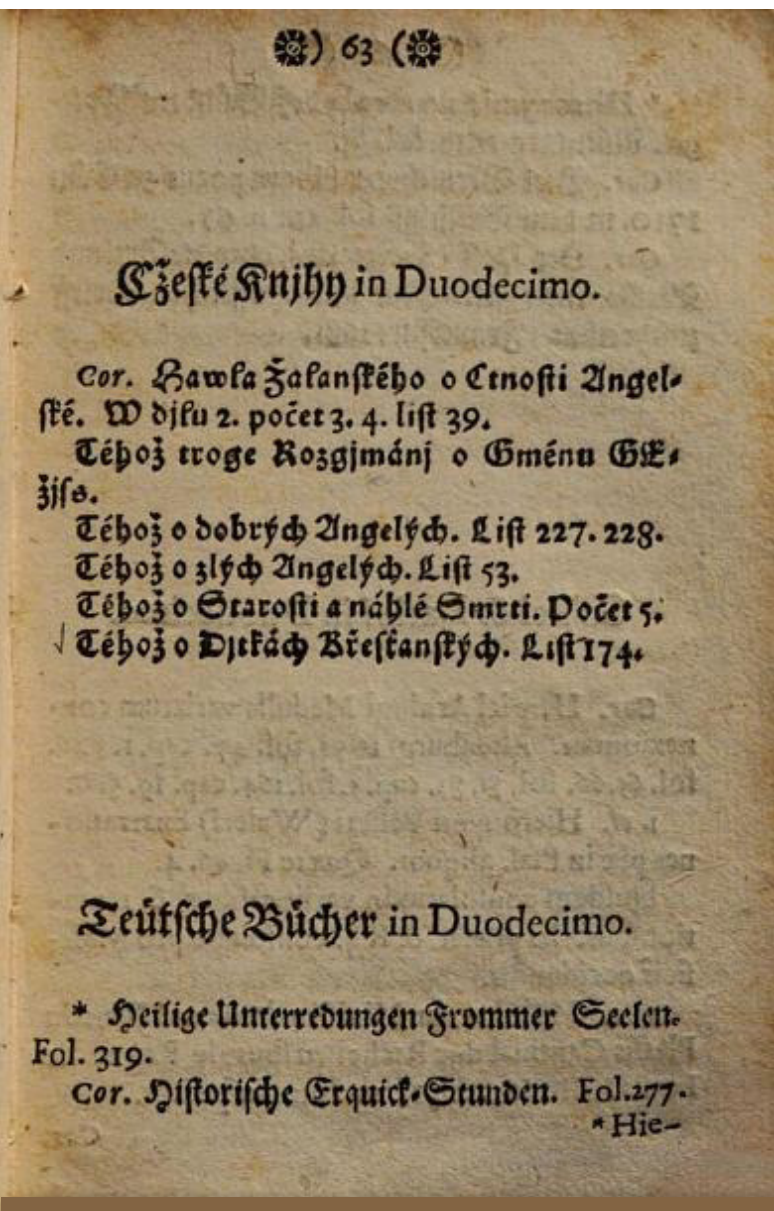 ) 63 (
Cžeské Knjhy in Duodecimo.
Cor. Hawla Žalanského o Ctnosti Angel-
ské. W djlu 2. počet 3. 4. list 39.
Téhož troge Rozgjmánj o Gménu GE-
žjſs.
Téhož o dobrých Angelých. List 227. 228.
Téhož o zlých Angelých. List 53.
Téhož o Starosti a náhlé Smrti. Počet 5.
√ Téhož o Djtkách Křesťanských. List 174.
Teütsche Bücher in Duodecimo.
* Heilige Unterredungen Frommer Seelen.
Fol. 319.
Cor. Historische Erquick-Stunden. Fol. 277.
* Hie-